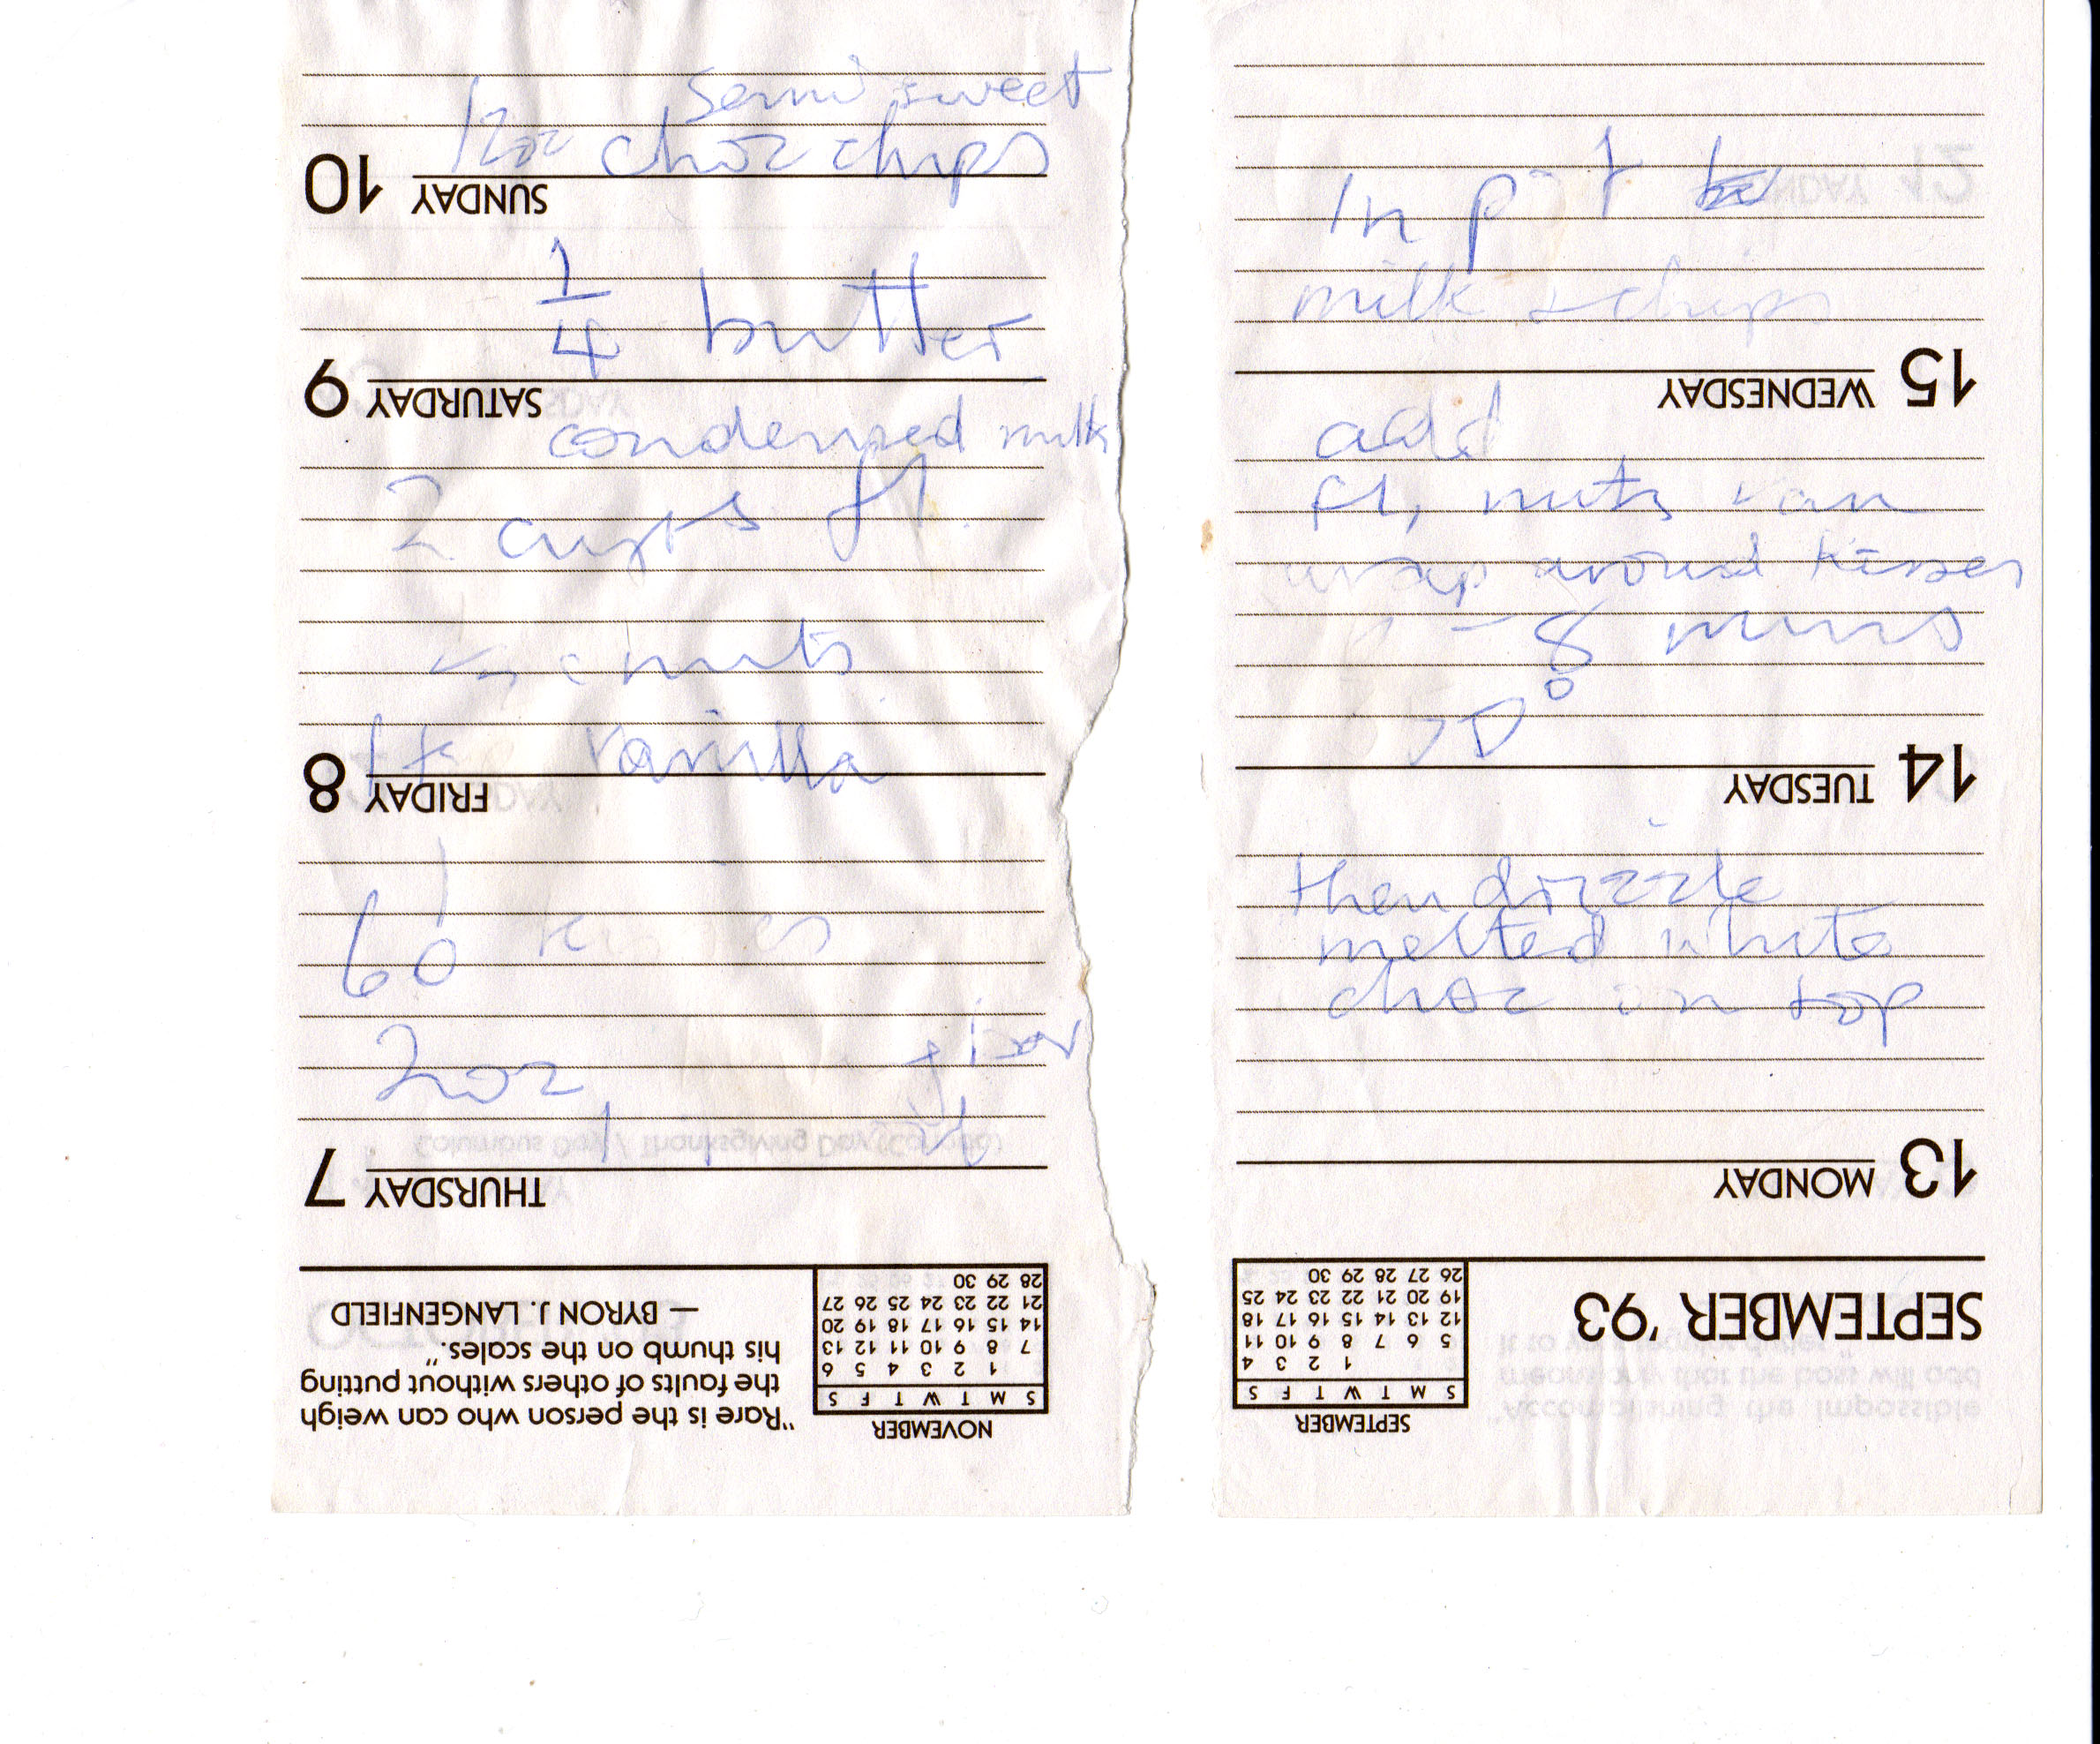 semi sweet
12oz choc chips
1/4 butter
condensed milk
2 cups fl.
nuts
1 t vanilla
60
2oz
In pot
milk + chips
add
fl, nuts van
wrap around kisses
- 8 mins
50°
then drizzle
melted white
choc on top
10 SUNDAY
9 SATURDAY
8 FRIDAY
7 THURSDAY
"Rare is the person who can weigh
the faults of others without putting
his thumb on the scales."
— BYRON J. LANGENFIELD
NOVEMBER
S M T W T F S
1 2 3 4 5 6
7 8 9 10 11 12 13
14 15 16 17 18 19 20
21 22 23 24 25 26 27
28 29 30
SEPTEMBER '93
13 MONDAY
14 TUESDAY
15 WEDNESDAY
SEPTEMBER
S M T W T F S
1 2 3 4
5 6 7 8 9 10 11
12 13 14 15 16 17 18
19 20 21 22 23 24 25
26 27 28 29 30
Columbus Day / Thanksgiving Day (Canada)
"Accomplishing the impossible
means only that the boss will add
it to your regular duties."